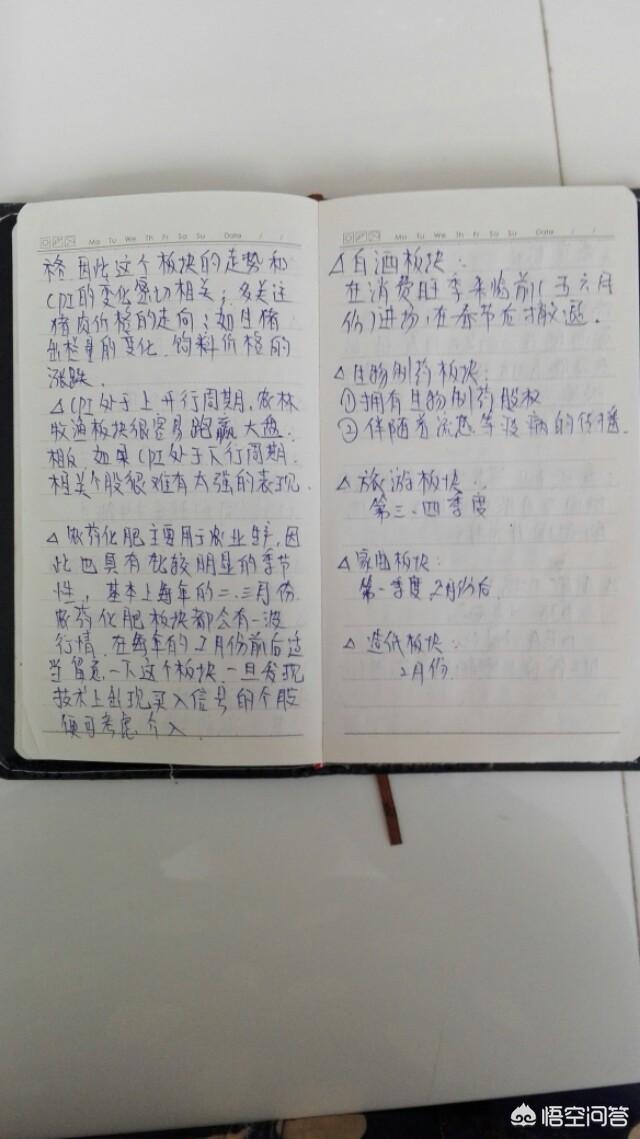 Mo Tu We Th Fr Sa Su Date / /
格.因此这个板块的走势和
CPI的变化密切相关；多关注
猪肉价格的走向；如生猪
出栏量的变化.饲料价格的
涨跌.
△CPI处于上升行周期.农林
牧渔板块很容易跑赢大盘.
相反.如果CPI处于下行周期.
相关个股很难有太强的表现.
△农药化肥主要用于农业生产,因
此也具有比较明显的季节
性，基本上每年的二.三月份.
农药化肥板块都会有一波
行情.在每年的2月份前后适
当留意一下这个板块.一旦发现
技术上出现买入信号的个股
便可考虑介入.
Mo Tu We Th Fr Sa Su Date / /
△白酒板块：
在消费旺季来临前(五六月
份)进场,在春节后才撤退.
△生物制药板块：
①拥有生物制药股权
②伴随着流感等疫病的传播.
△旅游板块：
第三.四季度
△家电板块：
第一季度.2月份后.
△造纸板块：
2月份.
悟空问答